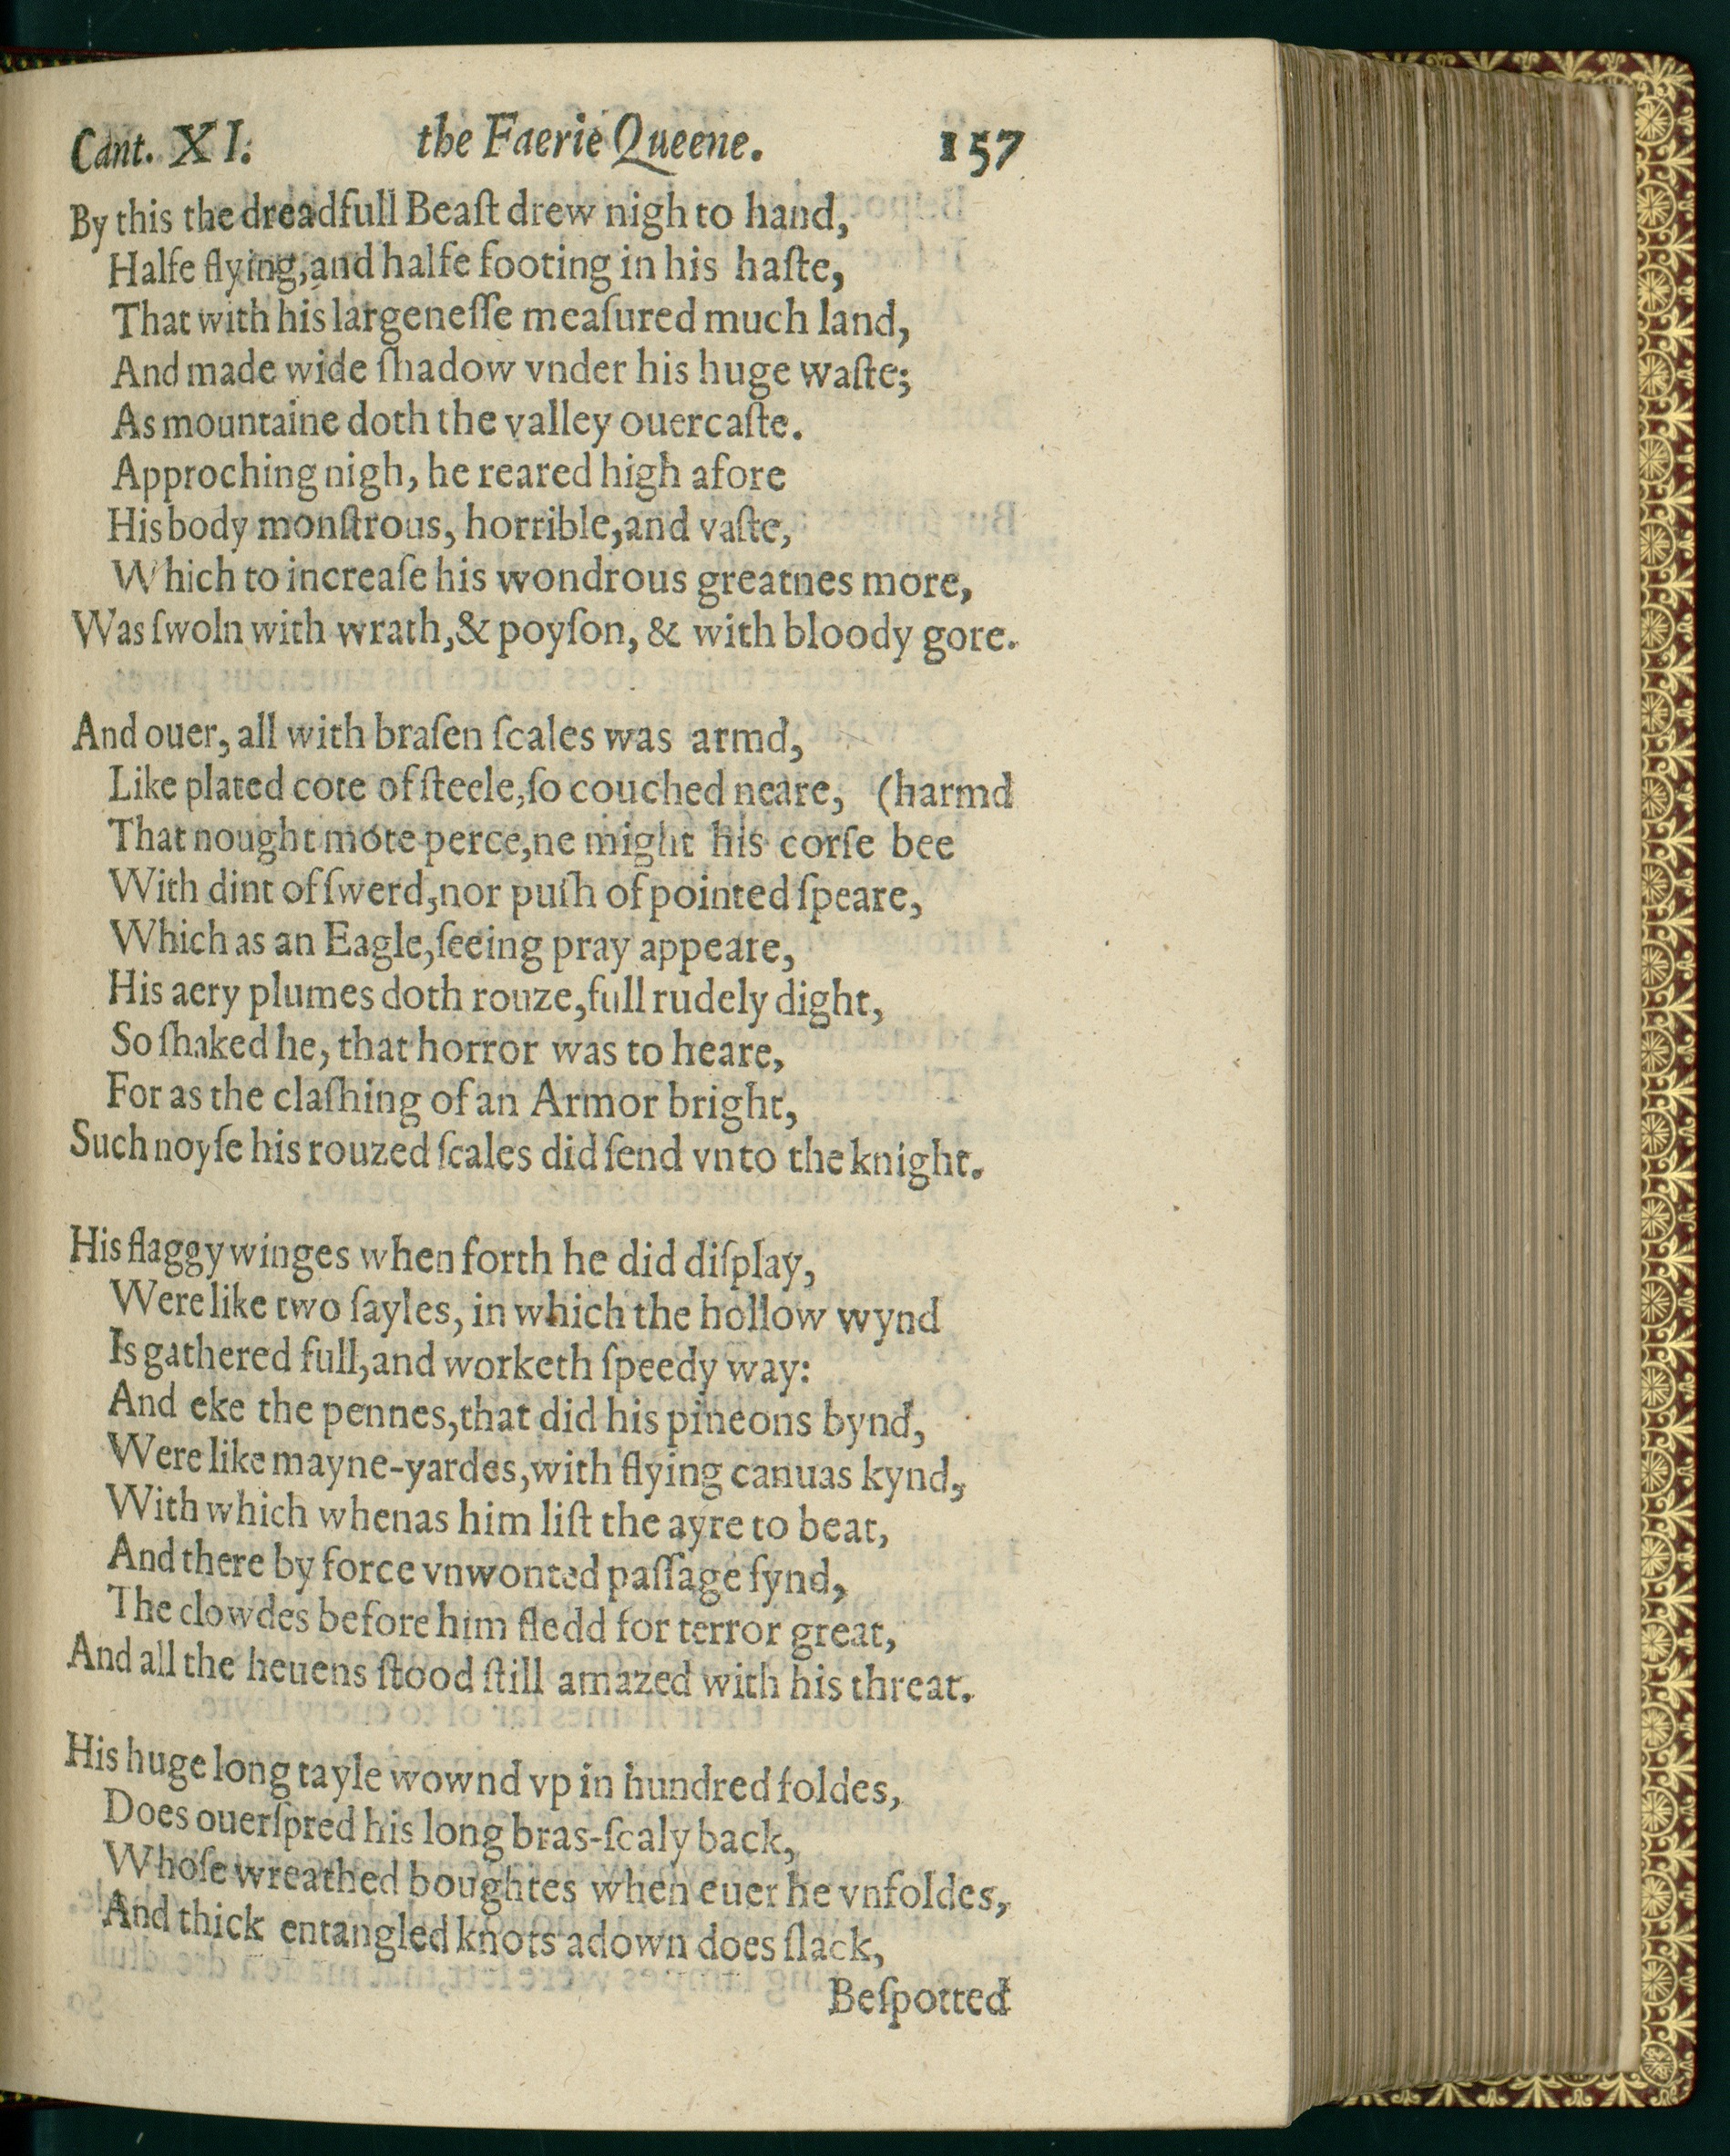 Cant. XI. the Faerie Queene. 157
By this the dreadfull Beaſt drew nigh to hand,
Halfe flying, and halfe footing in his haſte,
That with his largeneſſe meaſured much land,
And made wide ſhadow vnder his huge waſte;
As mountaine doth the valley ouercaſte.
Approching nigh, he reared high afore
His body monſtrous, horrible, and vaſte,
Which to increaſe his wondrous greatnes more,
Was ſwoln with wrath, & poyſon, & with bloody gore.
And ouer, all with braſen ſcales was armd,
Like plated cote of ſteele, ſo couched neare, (harmd
That nought mote perce, ne might his corſe bee
With dint of ſwerd, nor puſh of pointed ſpeare,
Which as an Eagle, ſeeing pray appeare,
His aery plumes doth rouze, full rudely dight,
So ſhaked he, that horror was to heare,
For as the claſhing of an Armor bright,
Such noyſe his rouzed ſcales did ſend vnto the knight.
His flaggy winges when forth he did diſplay,
Were like two ſayles, in which the hollow wynd
Is gathered full, and worketh ſpeedy way:
And eke the pennes, that did his pineons bynd,
Were like mayne-yardes, with flying canuas kynd,
With which whenas him liſt the ayre to beat,
And there by force vnwonted paſſage fynd,
The clowdes before him fledd for terror great,
And all the heuens ſtood ſtill amazed with his threat.
His huge long tayle wownd vp in hundred foldes,
Does ouerſpred his long bras-ſcaly back,
Whoſe wreathed boughtes when euer he vnfoldes,
And thick entangled knots adown does ſlack,
Beſpotted